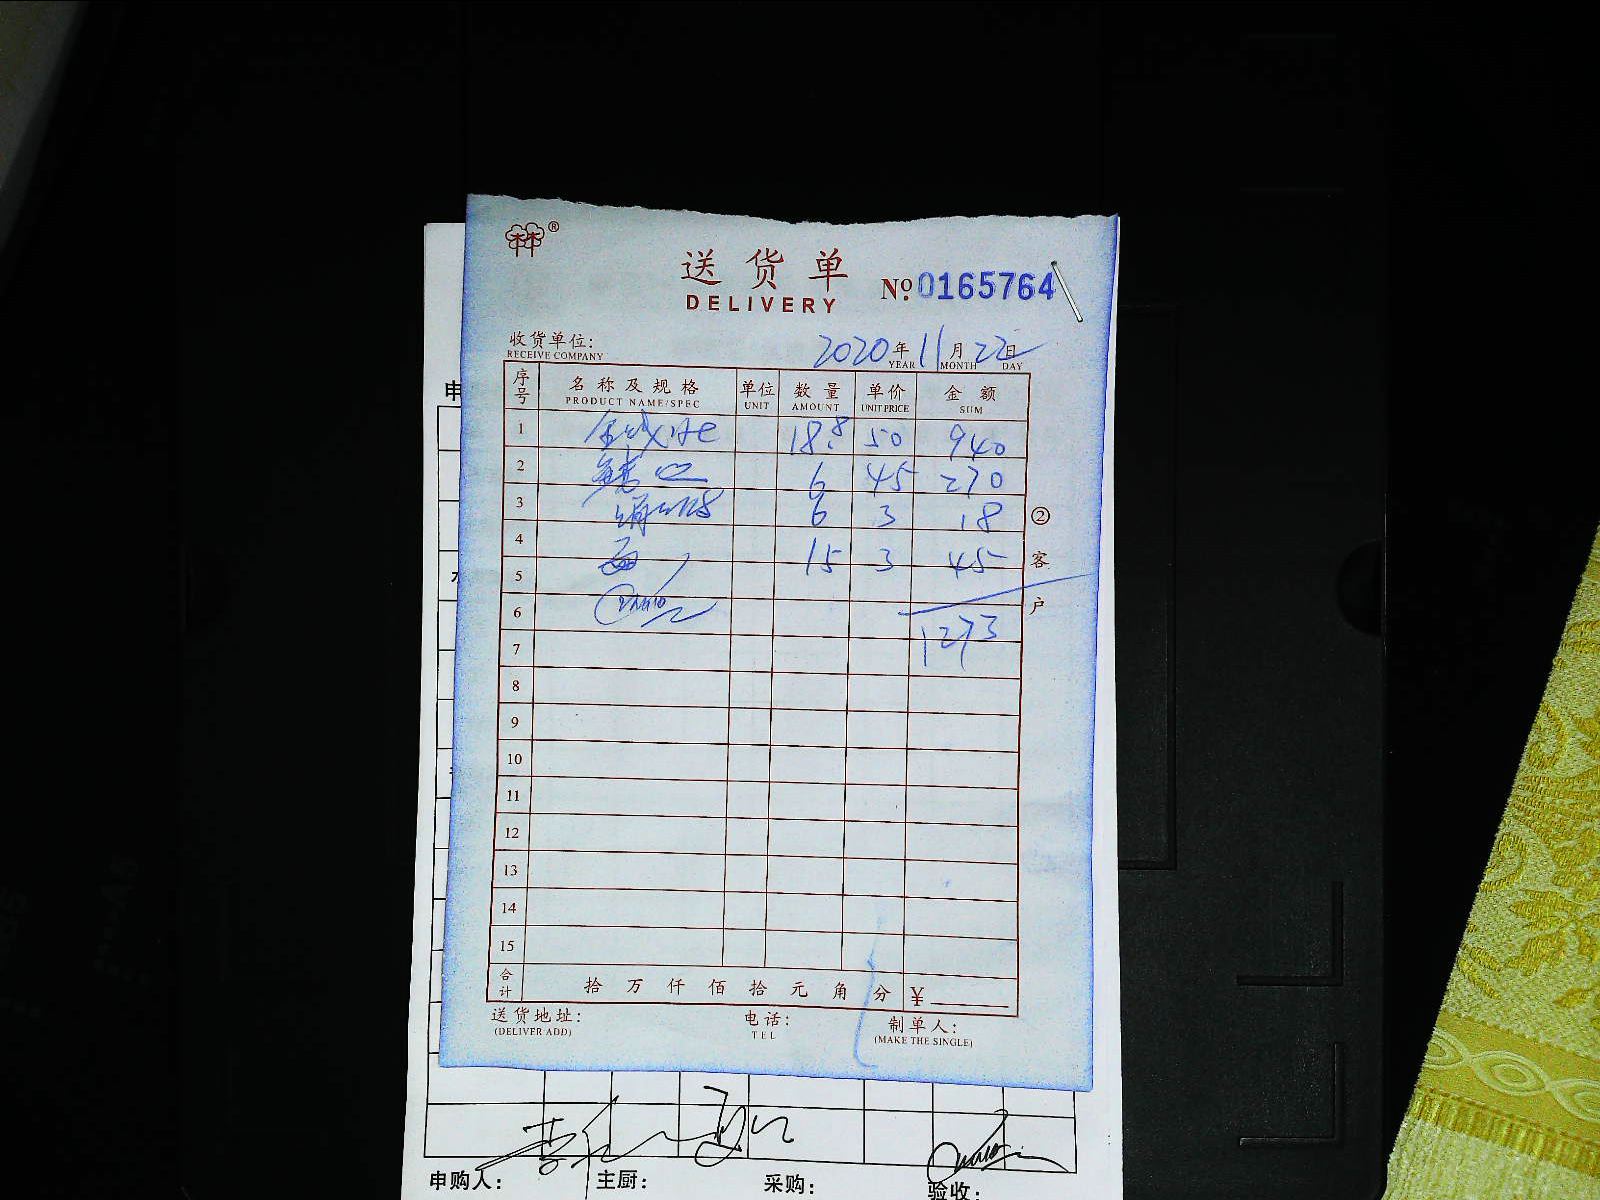 ®
送货单
DELIVERY
№ 0165764
收货单位:
RECEIVE COMPANY
2020年11月22日
YEAR MONTH DAY
序号 名称及规格 单位 数量 单价 金额
PRODUCT NAME/SPEC UNIT AMOUNT UNIT PRICE SUM
1 18.8 50 940
2 6 45 270
3 6 3 18
4 15 3 45
5
6 1273
7
8
9
10
11
12
13
14
15
②客户
合计 拾 万 仟 佰 拾 元 角 分 ¥
送货地址: 电话: 制单人:
(DELIVER ADD) TEL (MAKE THE SINGLE)
申
申购人: 主厨: 采购: 验收: